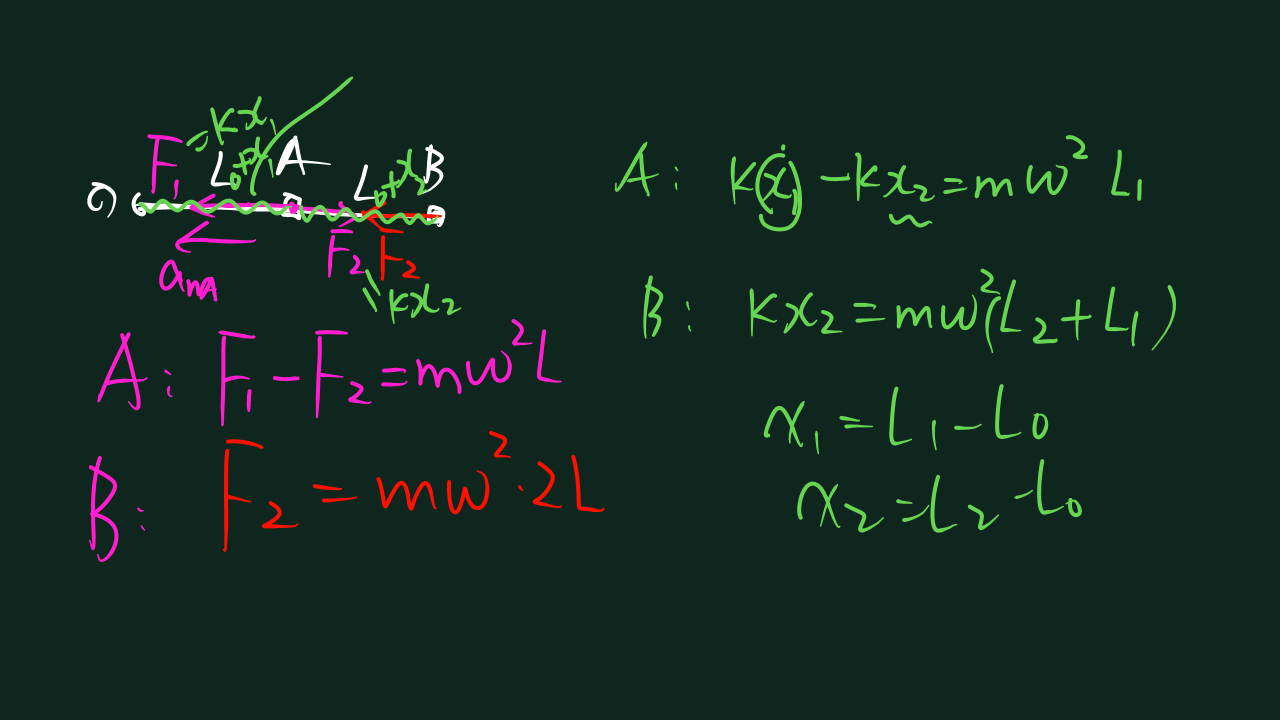 F₁ = kx₁
L₀+x₁ A L₀+x₂ B
O
F₂ F₂
aₙA = kx₂
A: F₁-F₂=mω²L
B: F₂=mω²·2L
A: k(x₁)-kx₂=mω²L₁
B: kx₂=mω²(L₂+L₁)
x₁=L₁-L₀
x₂=L₂-L₀